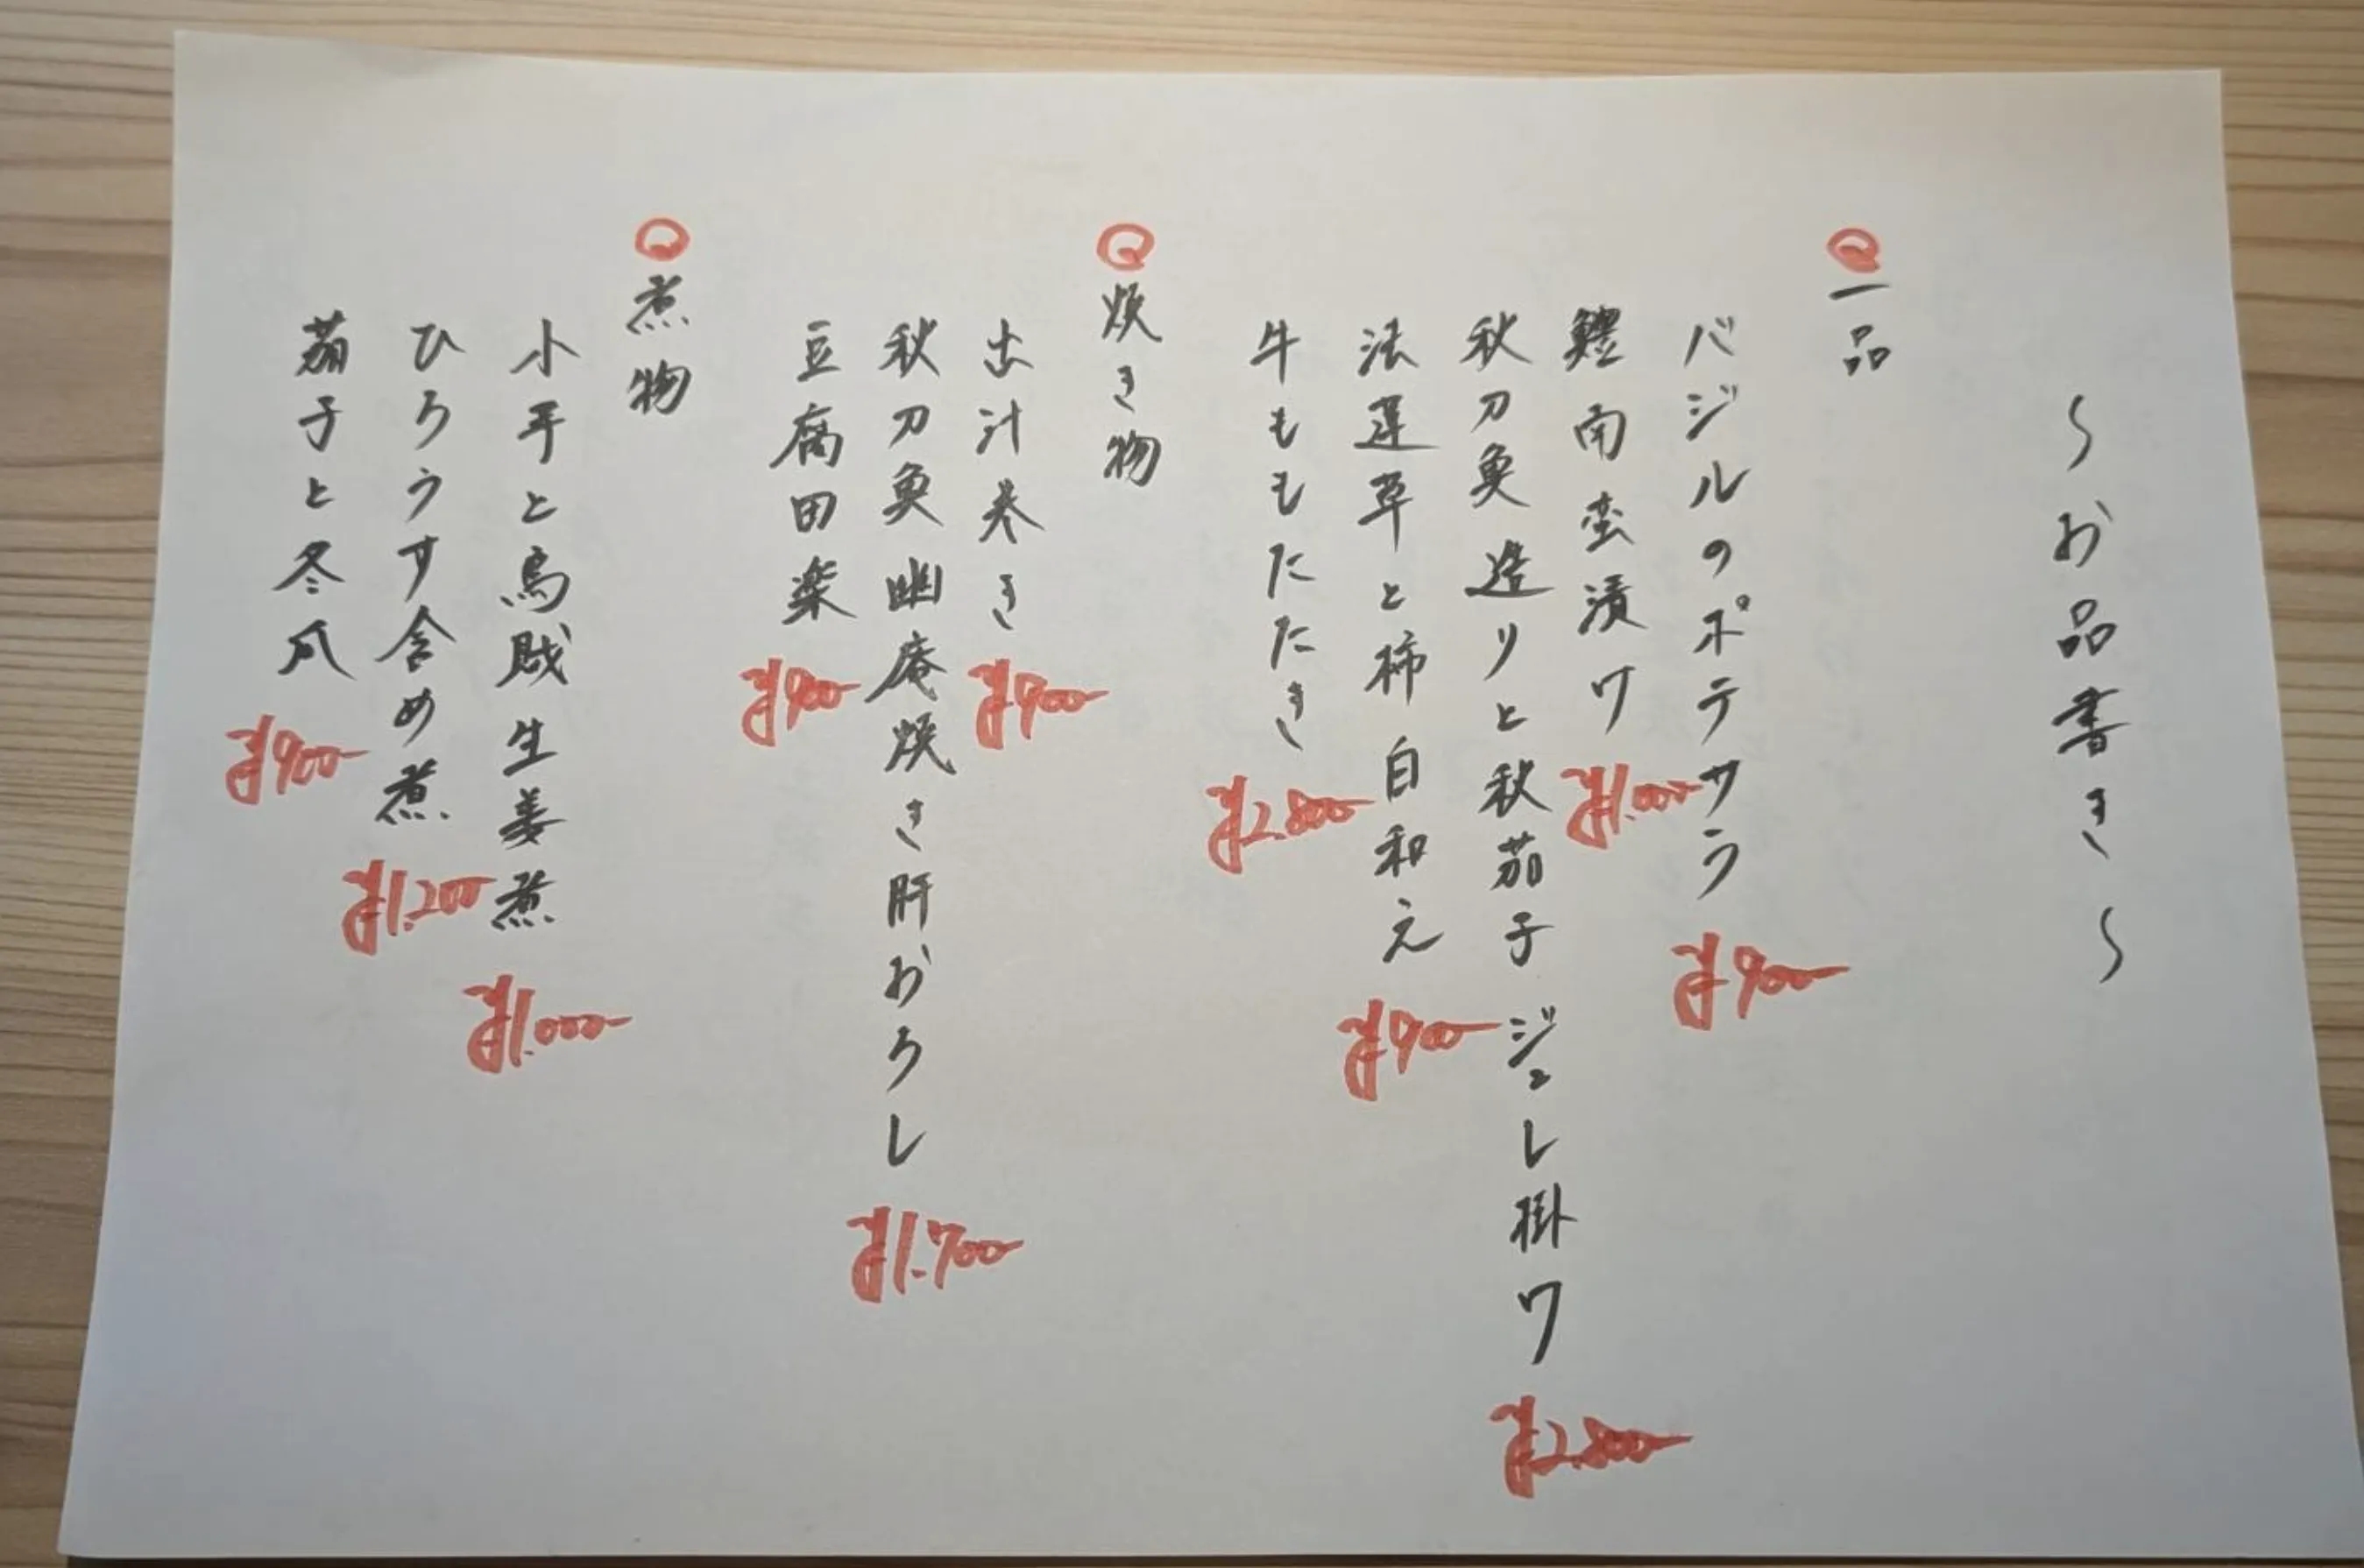 〜お品書き〜
◎一品
バジルのポテサラ ¥900
鱧南蛮漬ケ ¥1.000
秋刀魚造リと秋茄子ジュレ掛ケ ¥2.800
法蓮草と柿白和え ¥900
牛ももたたき ¥2.800
◎焼き物
出汁巻き ¥900
秋刀魚幽庵焼き肝おろし ¥1.700
豆腐田楽 ¥900
◎煮物
小芋と烏賊生姜煮 ¥1.000
ひろうす含め煮 ¥1.200
茄子と冬瓜 ¥900